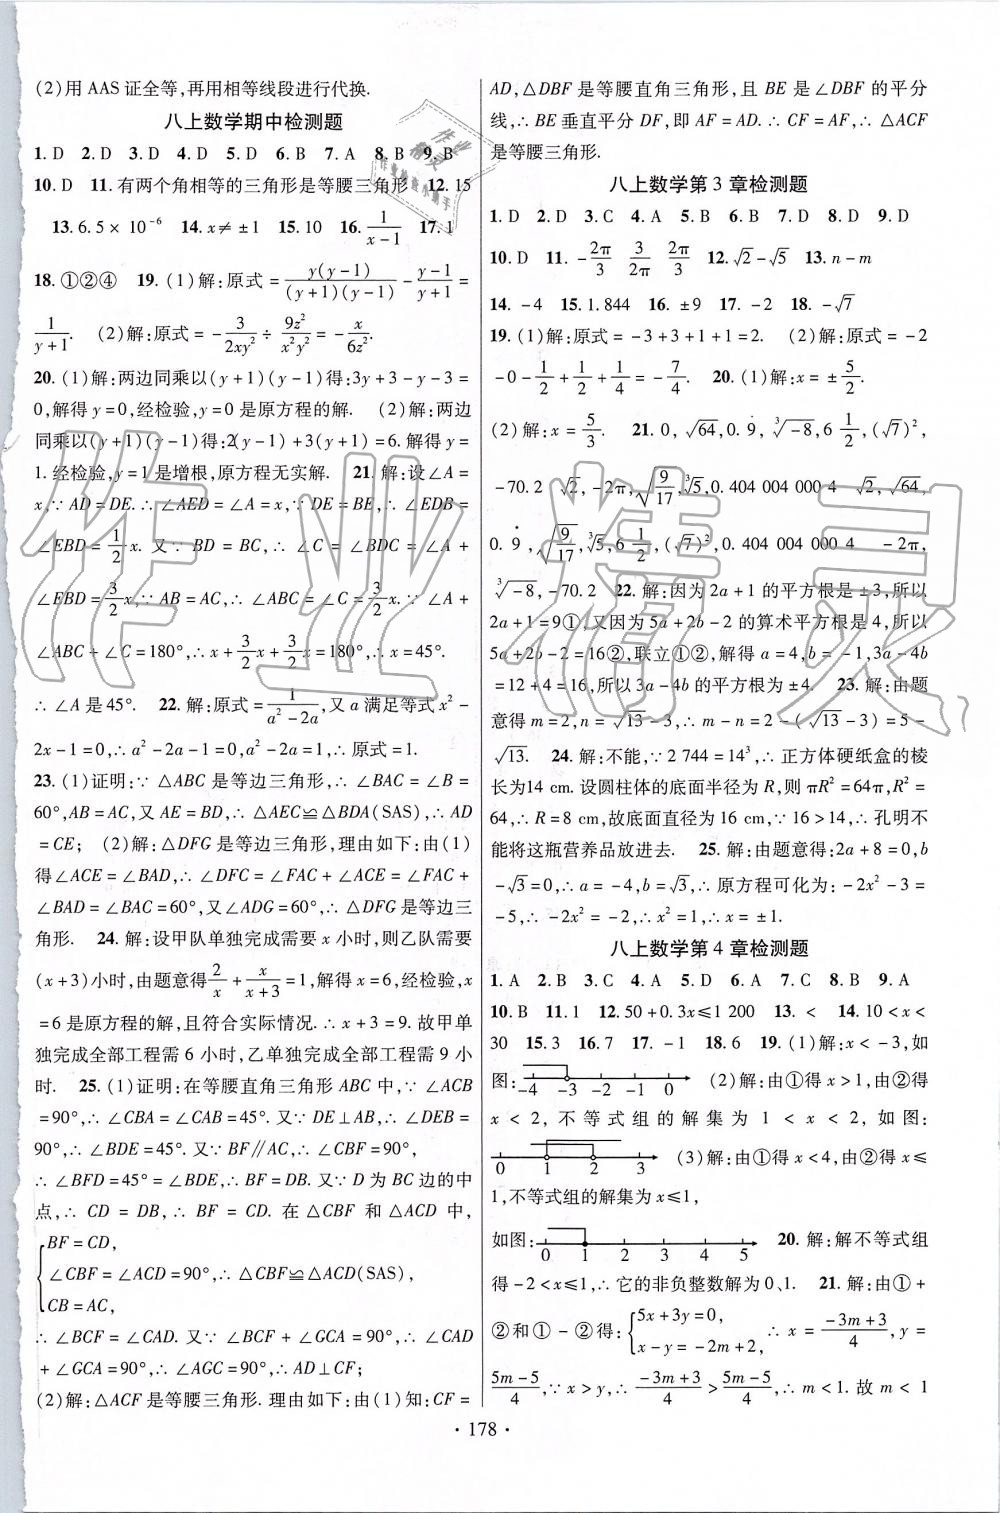 (2)用 AAS 证全等,再用相等线段进行代换.
八上数学期中检测题
1. D 2. D 3. D 4. D 5. D 6. B 7. A 8. B 9. B
10. D 11. 有两个角相等的三角形是等腰三角形 12. 15
13. 6.5×10⁻⁶ 14. x≠±1 15. 10 16. 1/(x−1) 17. 1
18. ①②④ 19. (1)解:原式=y(y−1)/((y+1)(y−1))−(y−1)/(y+1)=
1/(y+1). (2)解:原式=−3/(2xy²)÷9z²/(x²y²)=−x/(6z²).
20. (1)解:两边同乘以(y+1)(y−1)得:3y+3−y−3=
0,解得y=0,经检验,y=0是原方程的解. (2)解:两边
同乘以(y+1)(y−1)得:2(y−1)+3(y+1)=6.解得y=
1.经检验,y=1是增根,原方程无实解. 21. 解:设∠A=
x,∵AD=DE.∴∠AED=∠A=x,∵DE=BE,∴∠EDB=
∠EBD=1/2x. 又∵BD=BC,∴∠C=∠BDC=∠A+
∠EBD=3/2x,∵AB=AC,∴∠ABC=∠C=3/2x.∵∠A+
∠ABC+∠C=180°,∴x+3/2x+3/2x=180°,∴x=45°.
∴∠A是45°. 22. 解:原式=1/(a²−2a),又a满足等式x²−
2x−1=0,∴a²−2a−1=0,a²−2a=1,∴原式=1.
23. (1)证明:∵△ABC是等边三角形,∴∠BAC=∠B=
60°,AB=AC,又AE=BD,∴△AEC≌△BDA(SAS),∴AD
=CE; (2)解:△DFG是等边三角形,理由如下:由(1)
得∠ACE=∠BAD,∴∠DFC=∠FAC+∠ACE=∠FAC+
∠BAD=∠BAC=60°,又∠ADG=60°,∴△DFG是等边三
角形. 24. 解:设甲队单独完成需要x小时,则乙队需要
(x+3)小时,由题意得2/x+x/(x+3)=1,解得x=6,经检验,x
=6是原方程的解,且符合实际情况.∴x+3=9.故甲单
独完成全部工程需6小时,乙单独完成全部工程需9小
时. 25. (1)证明:在等腰直角三角形ABC中,∵∠ACB
=90°,∴∠CBA=∠CAB=45°.又∵DE⊥AB,∴∠DEB=
90°,∴∠BDE=45°.又∵BF∥AC,∴∠CBF=90°,
∴∠BFD=45°=∠BDE,∴BF=DB.又∵D为BC边的中
点,∴CD=DB,∴BF=CD.在△CBF和△ACD中,
BF=CD,
∠CBF=∠ACD=90°,∴△CBF≌△ACD(SAS),
CB=AC,
∴∠BCF=∠CAD.又∵∠BCF+∠GCA=90°,∴∠CAD
+∠GCA=90°,∴∠AGC=90°,∴AD⊥CF;
(2)解:△ACF是等腰三角形.理由如下:由(1)知:CF=
AD,△DBF是等腰直角三角形,且BE是∠DBF的平分
线,∴BE垂直平分DF,即AF=AD.∴CF=AF,∴△ACF
是等腰三角形.
八上数学第3章检测题
1. D 2. D 3. C 4. A 5. B 6. B 7. D 8. D 9. D
10. D 11. −2π/3 3/2π 2π/3 12. √2−√5 13. n−m
14. −4 15. 1.844 16. ±9 17. −2 18. −√7
19. (1)解:原式=−3+3+1+1=2. (2)解:原式=−2
−0−1/2+1/2+1/4=−7/4. 20. (1)解:x=±5/2.
(2)解:x=5/3. 21. 0,√64,0.9̇,³√−8,6 1/2,(√7)²,
−70.2 √2,−2π,√(9/17),³√5,0.404 004 000 4 √2,√64,
0.9̇,√(9/17),³√5,6 1/2,(√7)²,0.404 004 000 4 −2π,
³√−8,−70.2 22. 解:因为2a+1的平方根是±3,所以
2a+1=9①,又因为5a+2b−2的算术平方根是4,所以
5a+2b−2=16②,联立①②,解得a=4,b=−1,3a−4b
=12+4=16,所以3a−4b的平方根为±4. 23. 解:由题
意得m=2,n=√13−3,∴m−n=2−(√13−3)=5−
√13. 24. 解:不能,∵2 744=14³,∴正方体硬纸盒的棱
长为14 cm.设圆柱体的底面半径为R,则πR²=64π,R²=
64,∴R=8 cm,故底面直径为16 cm,∵16>14,∴孔明不
能将这瓶营养品放进去. 25. 解:由题意得:2a+8=0,b
−√3=0,∴a=−4,b=√3,∴原方程可化为:−2x²−3=
−5,∴−2x²=−2,∴x²=1,∴x=±1.
八上数学第4章检测题
1. A 2. B 3. B 4. A 5. D 6. A 7. C 8. B 9. A
10. B 11. 1 12. 50+0.3x≤1 200 13. < 14. 10<x<
30 15. 3 16. 7 17. −1 18. 6 19. (1)解:x<−3,如
图: −4 −3 −2 −1 0 (2)解:由①得x>1,由②得
x<2,不等式组的解集为1<x<2,如图:
0 1 2 3 (3)解:由①得x<4,由②得x≤
1,不等式组的解集为x≤1,
如图: 0 1 2 3 4 5 20. 解:解不等式组
得−2<x≤1,∴它的非负整数解为0、1. 21. 解:由①+
②和①−②得:{5x+3y=0, x−y=−2m+2, ∴x=(−3m+3)/4,y=
(5m−5)/4,∵x>y,∴(−3m+3)/4>(5m−5)/4,∴m<1.故m<1
· 178 ·
作业精灵